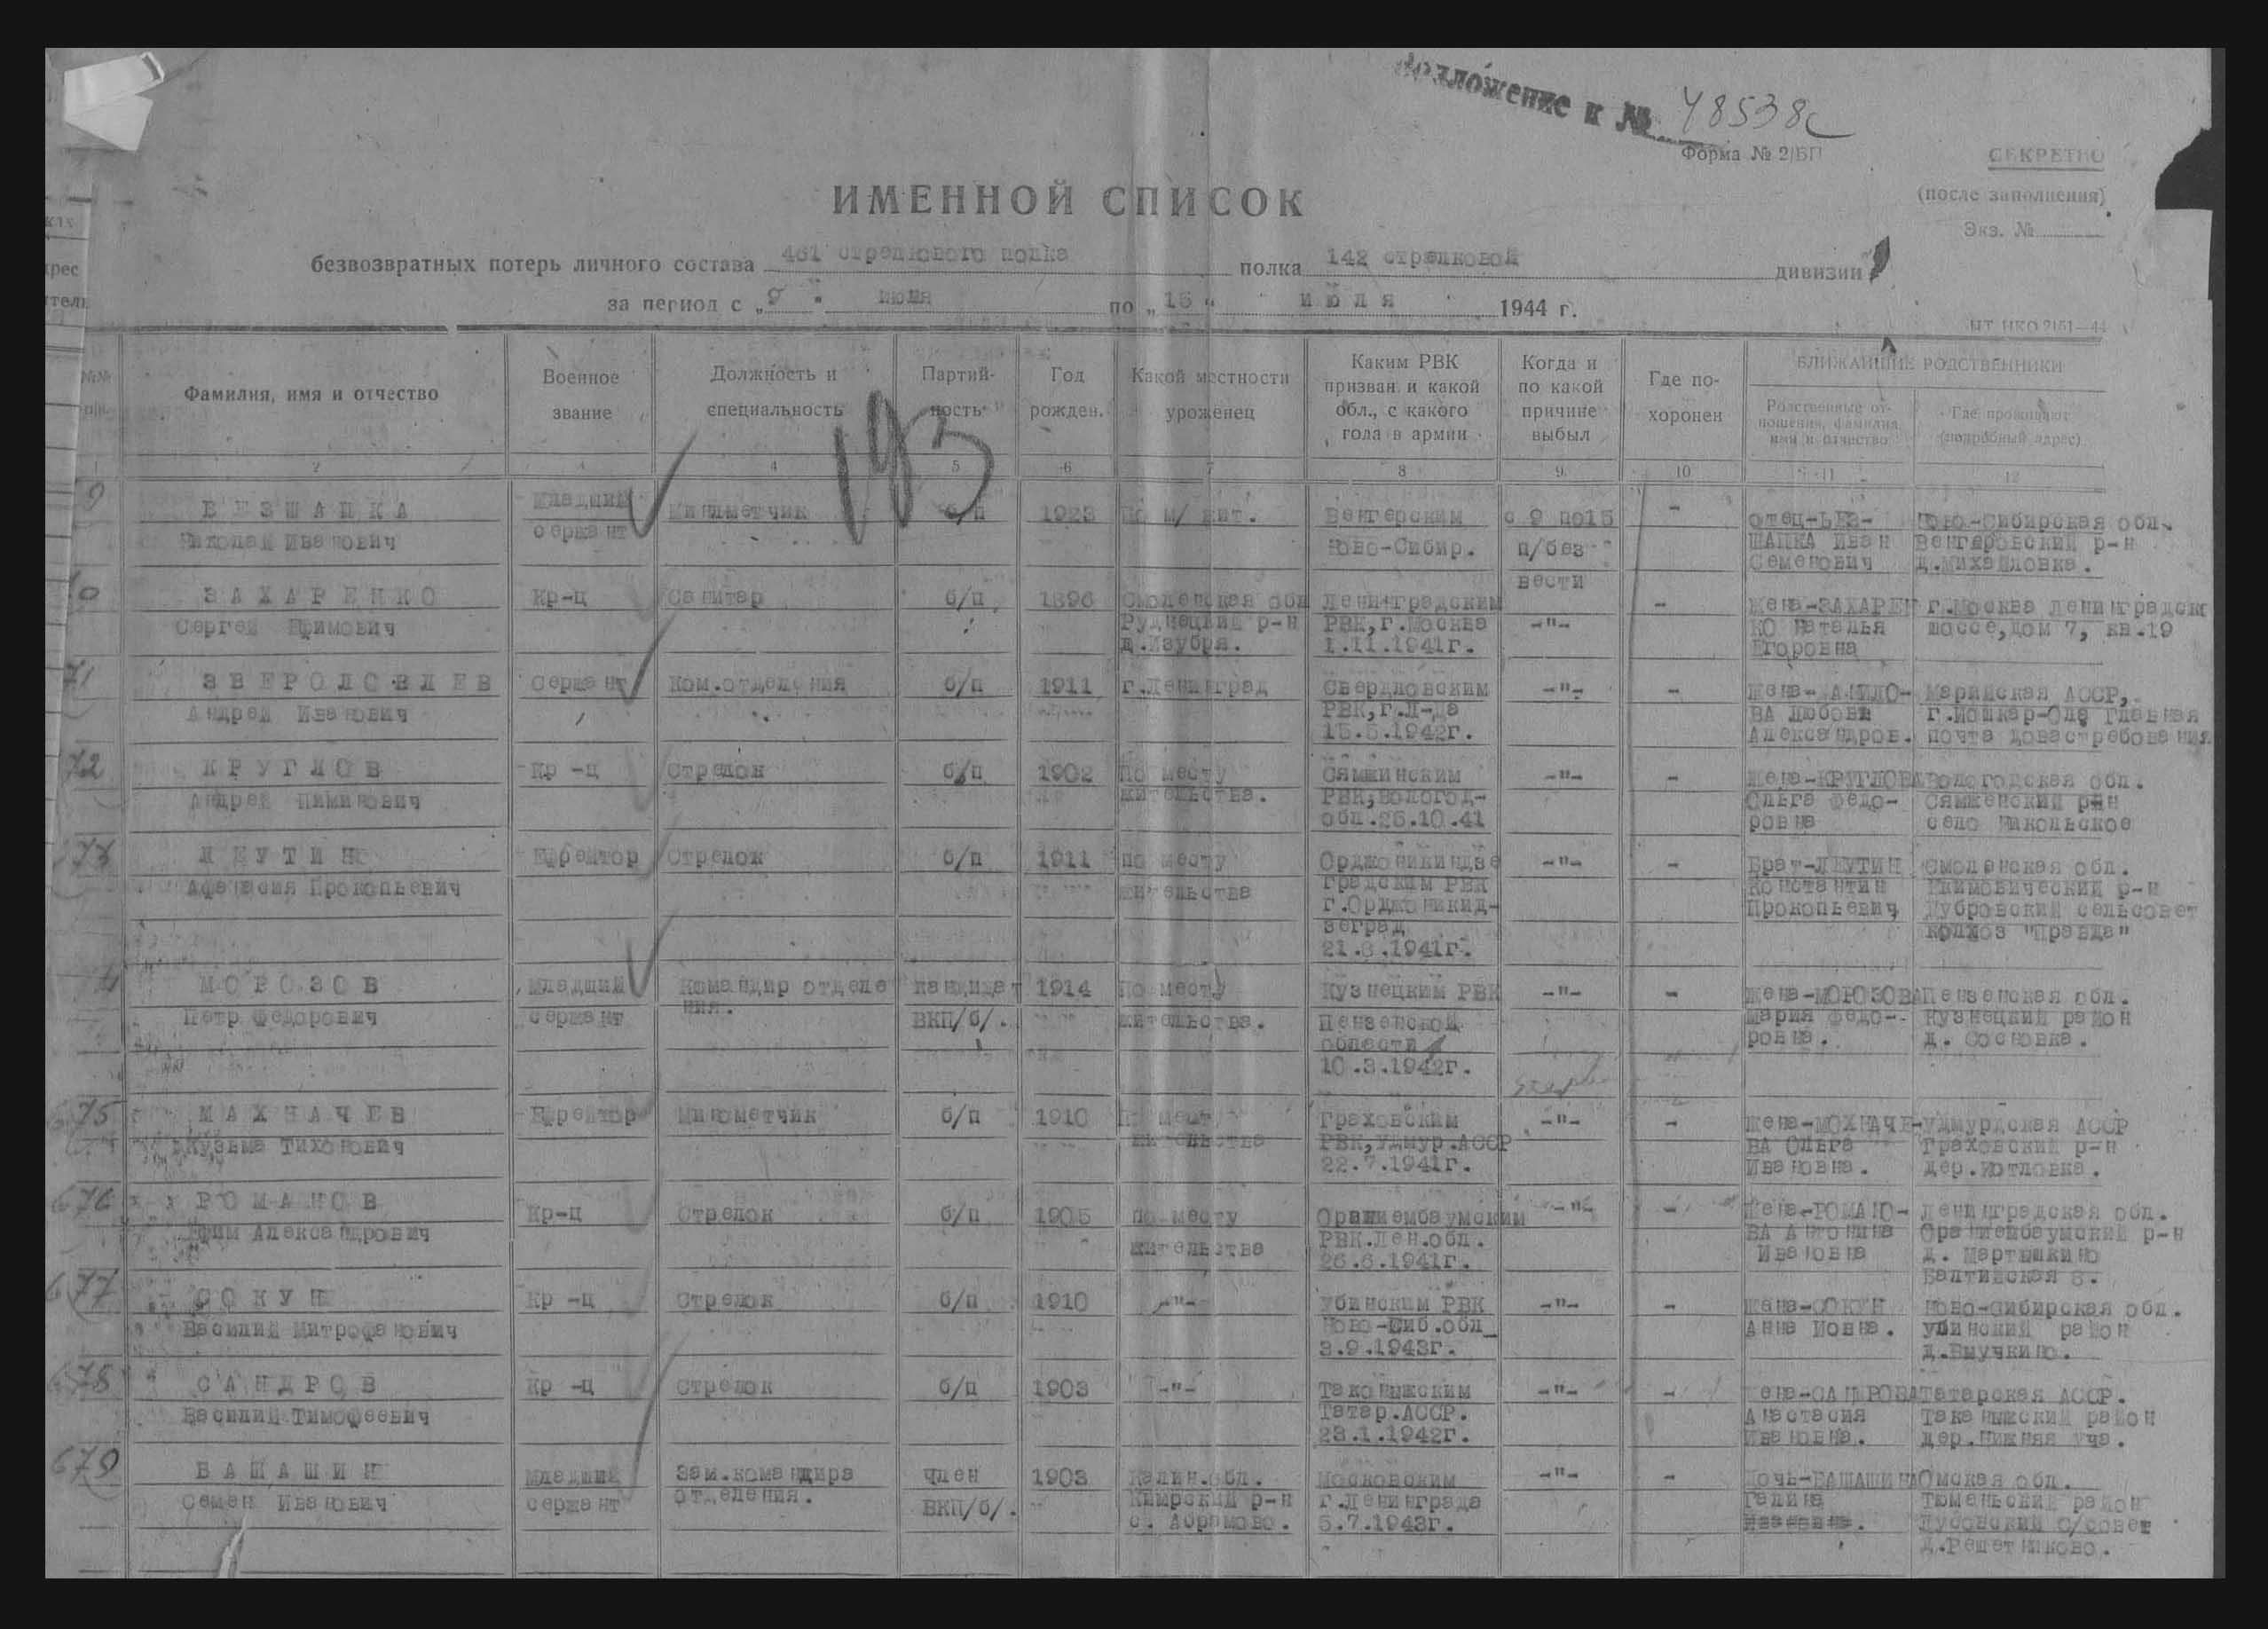 к № 48538с
Форма № 2/БП
СЕКРЕТНО
(после заполнения)
Экз. №
ИМЕННОЙ СПИСОК
безвозвратных потерь личного состава 461 стрелкового полка полка 142 стрелковой дивизии
за период с „9" июля по „15" июля 1944 г.
№№ п/п.
Фамилия, имя и отчество
Военное звание
Должность и специальность
Партийность
Год рожден.
Какой местности уроженец
Каким РВК призван и какой обл., с какого года в армии
Когда и по какой причине выбыл
Где похоронен
БЛИЖАЙШИЕ РОДСТВЕННИКИ
Родственные отношения, фамилия, имя и отчество
Где проживают (подробный адрес)
2 4 5 6 7 8 9 10 11 12
193
БЕЗШАПКА Младший Минометчик б/п 1923 По м/жит. Венгерским с 9 по15 - отец-БЕЗ- Ново-Сибирская обл.
Николай Иванович сержант Ново-Сибир. п/без ШАПКА Иван Венгеровский р-н
вести Семенович д.Михайловка.
ЗАХАРЕНКО Кр-ц Санитар б/п 1896 Смоленская обл Ленинградским - жена-ЗАХАРЕН г.Москва Ленинградск
Сергей Ефимович Руднецкий р-н РВК,г.Москва -"- КО Наталья шоссе,дом 7, кв.19
д.Изубря. 1.11.1941г. Егоровна
71 ЗВЕРОЛОВЛЕВ Сержант Ком.отделения б/п 1911 г.Ленинград Свердловским -"- - Марийская АССР,
Андрей Иванович РВК,г.Л-да ВА Любовь г.Йошкар-Ола главная
15.5.1942г. Александров. почта довастребования
72 КРУГЛОВ Кр-ц Стрелок б/п 1902 По месту Сямжинским -"- - жена-КРУГЛОВА Вологодская обл.
Андрей Пиминович жительства. РВК,Вологод- Ольга Федо- Сямженский р-н
обл.26.10.41 ровна село Никольское
73 ЛЕУТИН Ефрейтор Стрелок б/п 1911 по месту Орджоникидзе -"- - Брат-ЛЕУТИН Смоленская обл.
Афанасия Прокопьевич жительства градским РВК Константин Екимовический р-н
г.Орджоникид- Прокопьевич Дубровский сельсовет
зеград колхоз "Правда"
21.8.1941г.
МОРОЗОВ Младший Командир отделе кандидат 1914 По месту Кузнецким РВК -"- - жена-МОРОЗОВА Пензенская обл.
Петр Федорович сержант ния. ВКП/б/. жительства. Пензенской Мария Федо- Кузнецкий район
области ровна. д. Сосновка.
10.3.1942г.
675 МАХНАЧЕВ Ефрейтор Минометчик б/п 1910 По месту Граховским -"- жена-МОХНАЧЕ- Удмурдская АССР
Кузьма Тихонович жительства РВК,Удмур.АССР ВА Ольга Граховский р-н
22.7.1941г. Ивановна. дер.Котловка.
676 РОМАНОВ Кр-ц Стрелок б/п 1905 По месту Ораниембаумским -"- - Жена-РОМАНО- Ленинградская обл.
Ефим Александрович жительства РВК.Лен.обл. ВА Антонина Ораниембаумский р-н
26.6.1941г. Ивановна д. Мартышкино
Балтийская 8.
677 СОКУН Кр-ц Стрелок б/п 1910 -"- Убинским РВК -"- - жена-СОКУН Ново-Сибирская обл.
Василий Митрофанович Ново-Сиб.обл Анна Ионна. убинский район
3.9.1943г.
678 САНДРОВ Кр-ц Стрелок б/п 1903 -"- Таконышским -"- - жена-САНДРОВА Татарская АССР.
Василий Тимофеевич Татар.АССР. Анастасия Таканышский район
23.1.1942г. Ивановна. дер.Нижняя уча.
679 БАШАШИН Младший Зам.командира член 1903 Калин.обл. Московским -"- - Дочь-БАШАШИНА Омская обл.
Семен Иванович сержант отделения. ВКП/б/. Кимрский р-н г.Ленинграда Галина Тюменьский район
с. Абрамово. 5.7.1943г. с/совет
д.Решетниково.